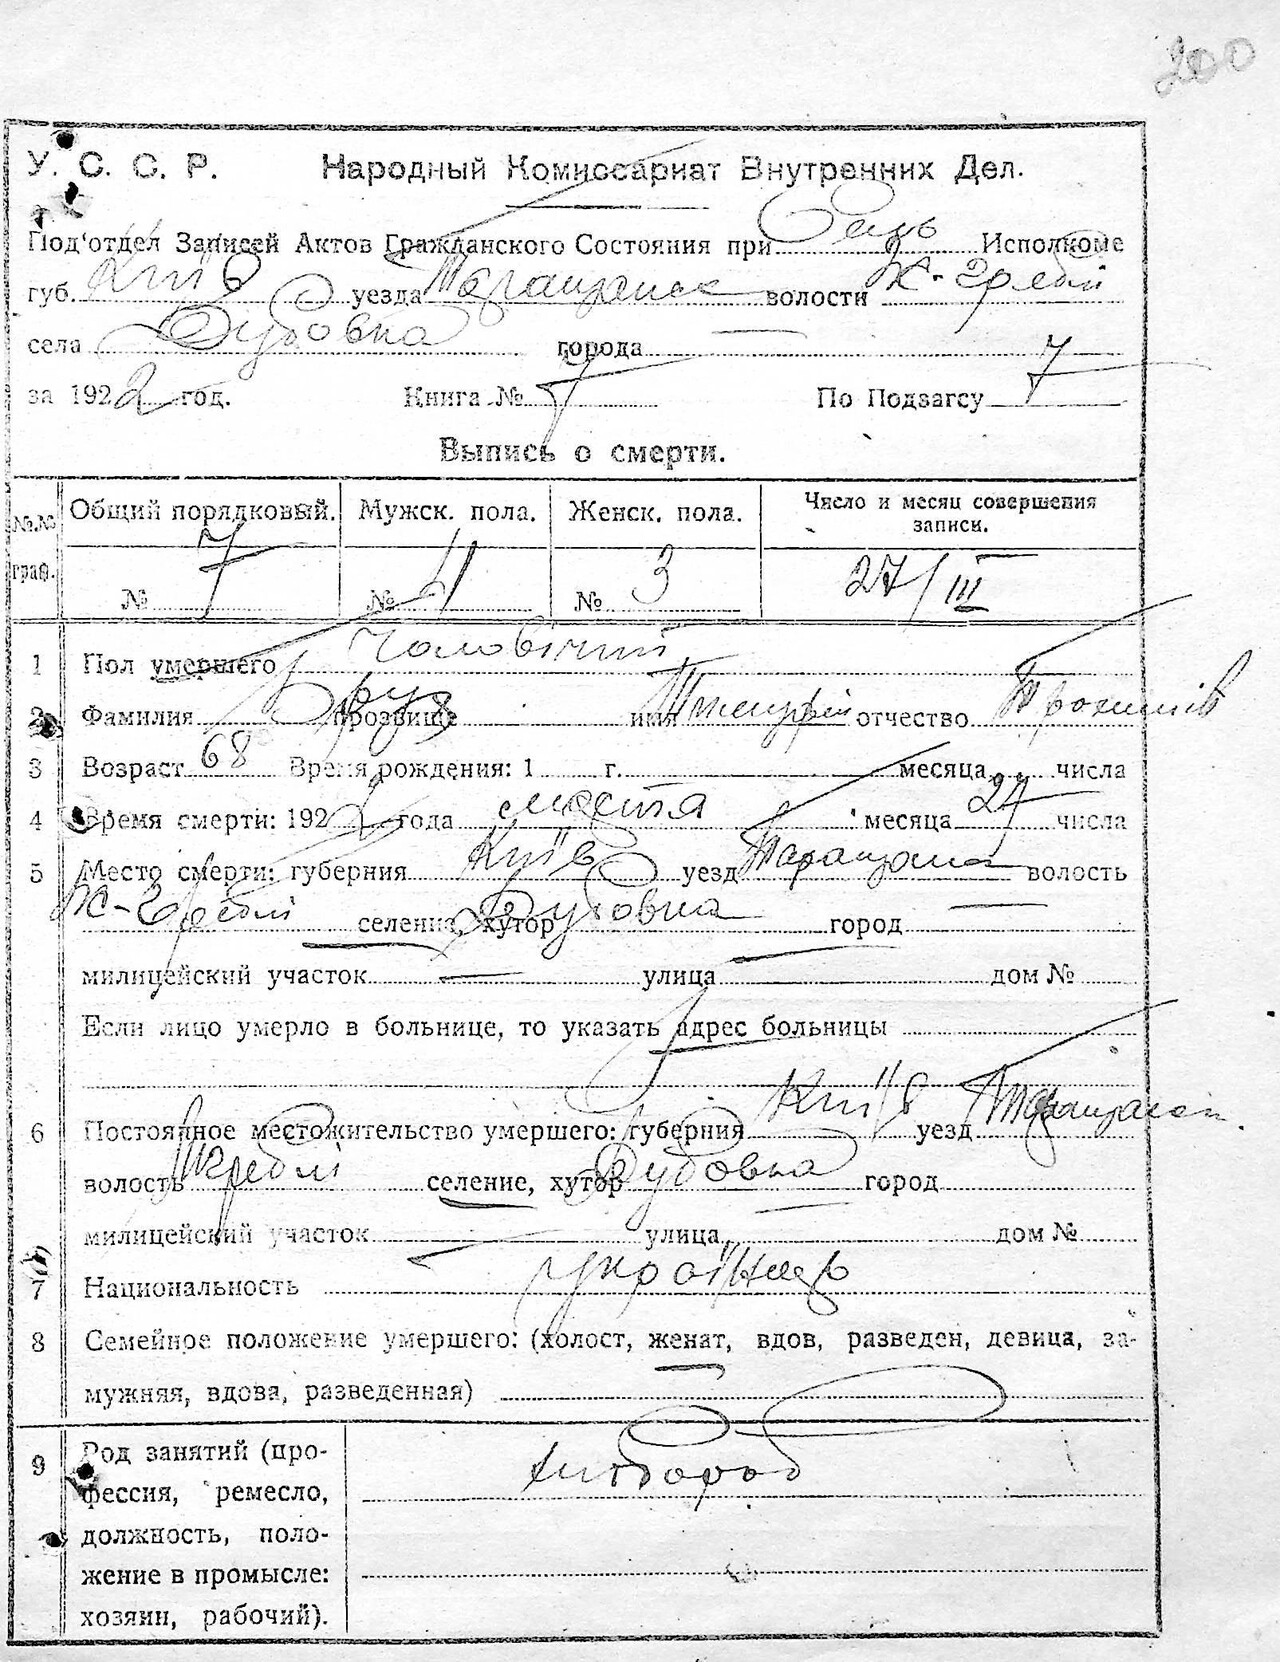 200
У. С. С. Р. Народный Комиссариат Внутренних Дел.
Под'отдел Записей Актов Гражданского Состояния при Сель Исполкоме
губ. Київ уезда Таращанск волости Ж-Гребли
села Дубовка города
за 1922 год. Книга № 7 По Подзагсу 7
Выпись о смерти.
№№ граф. Общий порядковый. Мужск. пола. Женск. пола. Число и месяц совершения
записи.
№ 7 № 4 № 3 27/III
1 Пол умершего Чоловічий
2 Фамилия прозвище имя отчество Трохимів
3 Возраст 68 Время рождения: 1 г. месяца числа
4 Время смерти: 1922 года месяца 27 числа
5 Место смерти: губерния Київ уезд Таращанск волость
Ж-Гребли селение, хутор Дубовка город
милицейский участок улица дом №
Если лицо умерло в больнице, то указать адрес больницы
6 Постоянное местожительство умершего: губерния Київ уезд Таращанск
волость Ж-Гребли селение, хутор Дубовка город
милицейский участок улица дом №
7 Национальность українець
8 Семейное положение умершего: (холост, женат, вдов, разведен, девица, за-
мужняя, вдова, разведенная)
9 Род занятий (про-
фессия, ремесло, хлібороб
должность, поло-
жение в промысле:
хозяин, рабочий).